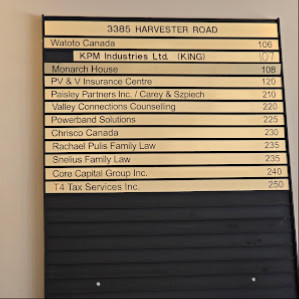 3385 HARVESTER ROAD
Watoto Canada 106
KPM Industries Ltd. (KING) 107
Monarch House 108
PV & V Insurance Centre 120
Paisley Partners Inc. / Carey & Szpiech 210
Valley Connections Counselling 220
Powerband Solutions 225
Chrisco Canada 230
Rachael Pulis Family Law 235
Snelius Family Law 235
Core Capital Group Inc. 240
T4 Tax Services Inc. 250